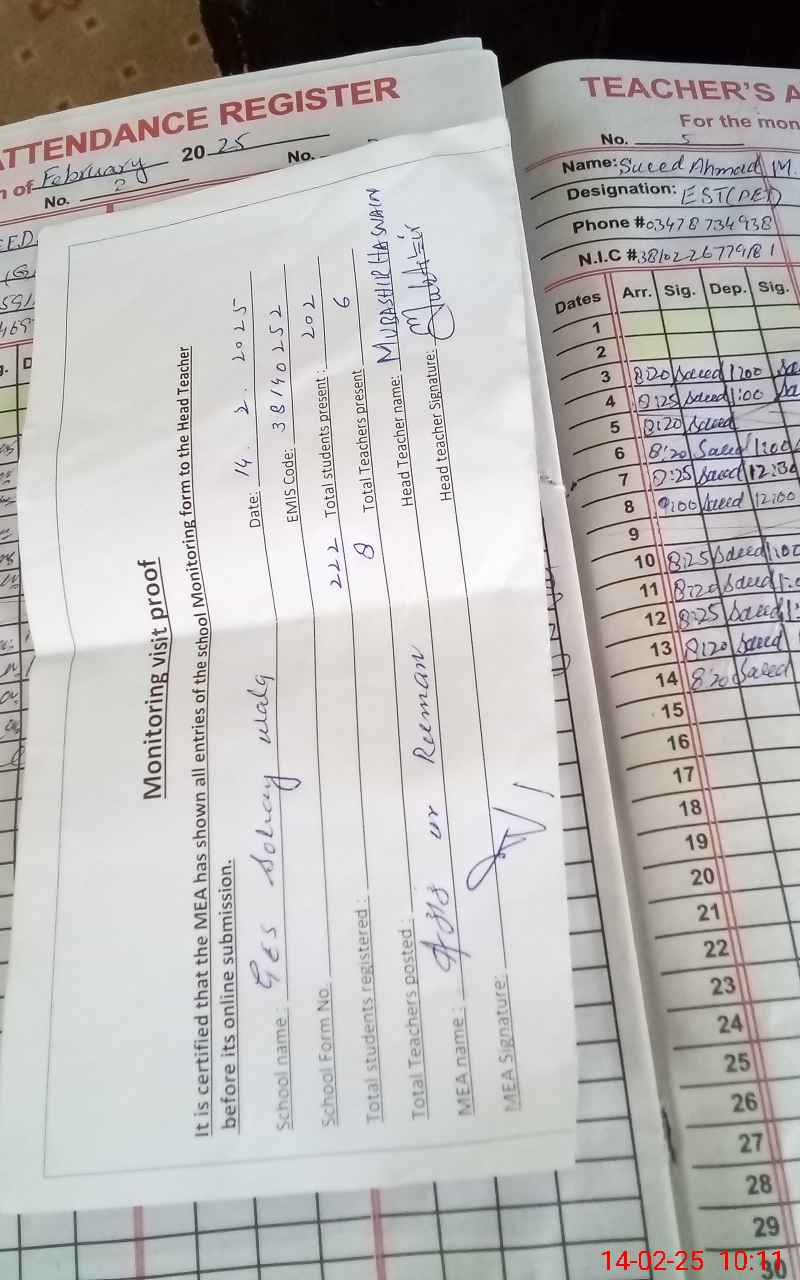 ATTENDANCE REGISTER
of February 2025
No. 2
No.
Monitoring visit proof
It is certified that the MEA has shown all entries of the school Monitoring form to the Head Teacher
before its online submission.
Date: 14.2.2025
School name: GES
EMIS Code: 38140252
School Form No.
Total students registered: 222 Total students present: 202
Total Teachers posted: 8 Total Teachers present 6
MEA name: ur Rehman Head Teacher name: MUBASHIR HASNAIN
MEA Signature: Head teacher Signature:
TEACHER'S A
For the mon
No. 5
Name: Saeed Ahmad M.
Designation: EST(PET)
Phone # 03478734938
N.I.C #
Dates Arr. Sig. Dep. Sig.
1
2
3 8:20 Saeed 1:00 Sa
4 8:25 Saeed 1:00 Sa
5 8:20 Saeed
6 8:20 Saeed 1:00
7 8:25 Saeed 12:30
8 9:00 Saeed 12:00
9
10 8:25 Saeed 1:00
11 8:20 Saeed
12 8:25 Saeed
13 8:20 Saeed
14 8:20 Saeed
15
16
17
18
19
20
21
22
23
24
25
26
27
28
29
30
14-02-25 10:11